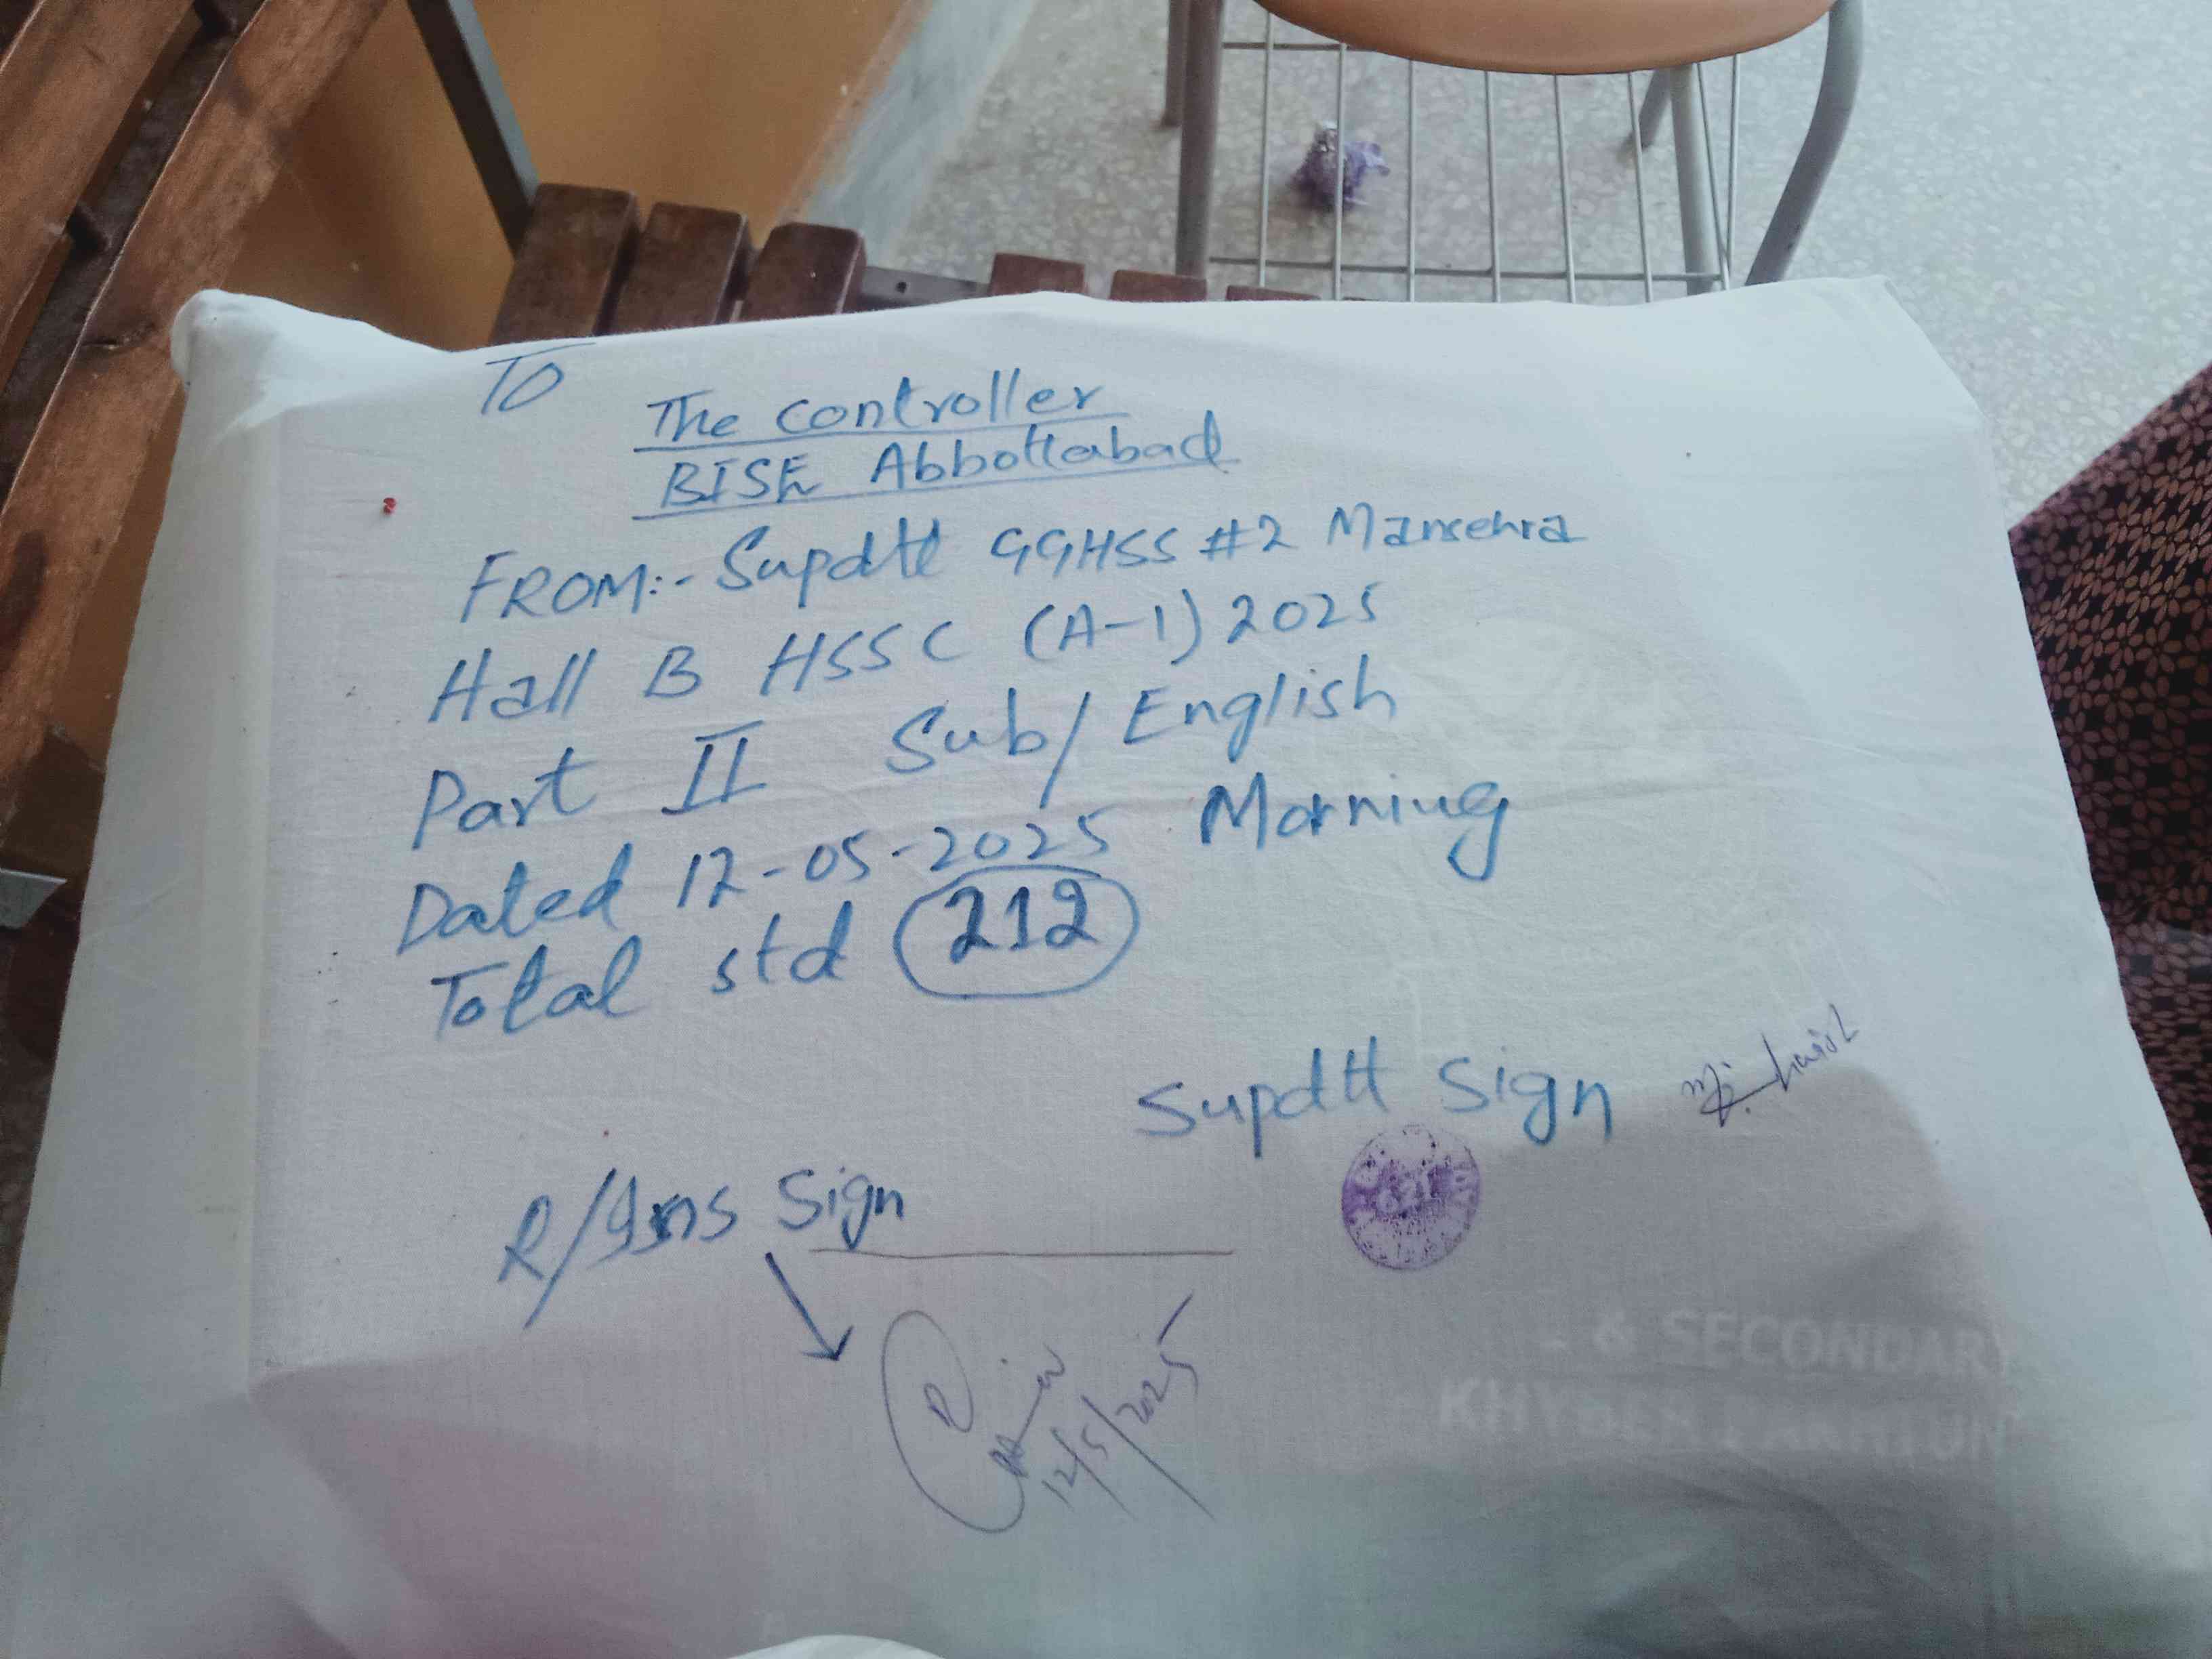 To
The Controller
BISE Abbottabad
FROM:- Supdtt GGHSS #2 Mansehra
Hall B HSSC (A-1) 2025
Part II Sub/ English
Dated 12-05-2025 Morning
Total std 212
Supdtt Sign
R/Ins Sign
12/5/2025
& SECONDARY
KHYBER PAKHTUN